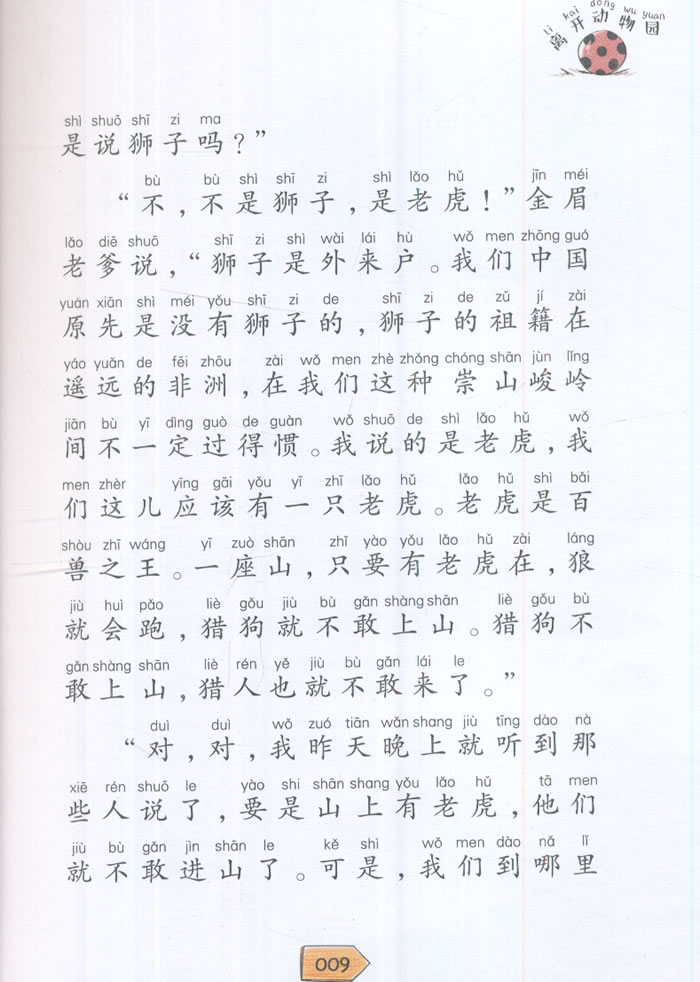 lí kāi dòng wù yuán
离开动物园
shì shuō shī zi ma
是说狮子吗？”
bù bù shì shī zi shì lǎo hǔ jīn méi
“不，不是狮子，是老虎！”金眉
lǎo diē shuō shī zi shì wài lái hù wǒ men zhōng guó
老爹说，“狮子是外来户。我们中国
yuán xiān shì méi yǒu shī zi de shī zi de zǔ jí zài
原先是没有狮子的，狮子的祖籍在
yáo yuǎn de fēi zhōu zài wǒ men zhè zhǒng chóng shān jùn lǐng
遥远的非洲，在我们这种崇山峻岭
jiān bù yī dìng guò de guàn wǒ shuō de shì lǎo hǔ wǒ
间不一定过得惯。我说的是老虎，我
men zhèr yīng gāi yǒu yī zhī lǎo hǔ lǎo hǔ shì bǎi
们这儿应该有一只老虎。老虎是百
shòu zhī wáng yī zuò shān zhǐ yào yǒu lǎo hǔ zài láng
兽之王。一座山，只要有老虎在，狼
jiù huì pǎo liè gǒu jiù bù gǎn shàng shān liè gǒu bù
就会跑，猎狗就不敢上山。猎狗不
gǎn shàng shān liè rén yě jiù bù gǎn lái le
敢上山，猎人也就不敢来了。”
duì duì wǒ zuó tiān wǎn shang jiù tīng dào nà
“对，对，我昨天晚上就听到那
xiē rén shuō le yào shi shān shang yǒu lǎo hǔ tā men
些人说了，要是山上有老虎，他们
jiù bù gǎn jìn shān le kě shì wǒ men dào nǎ lǐ
就不敢进山了。可是，我们到哪里
009